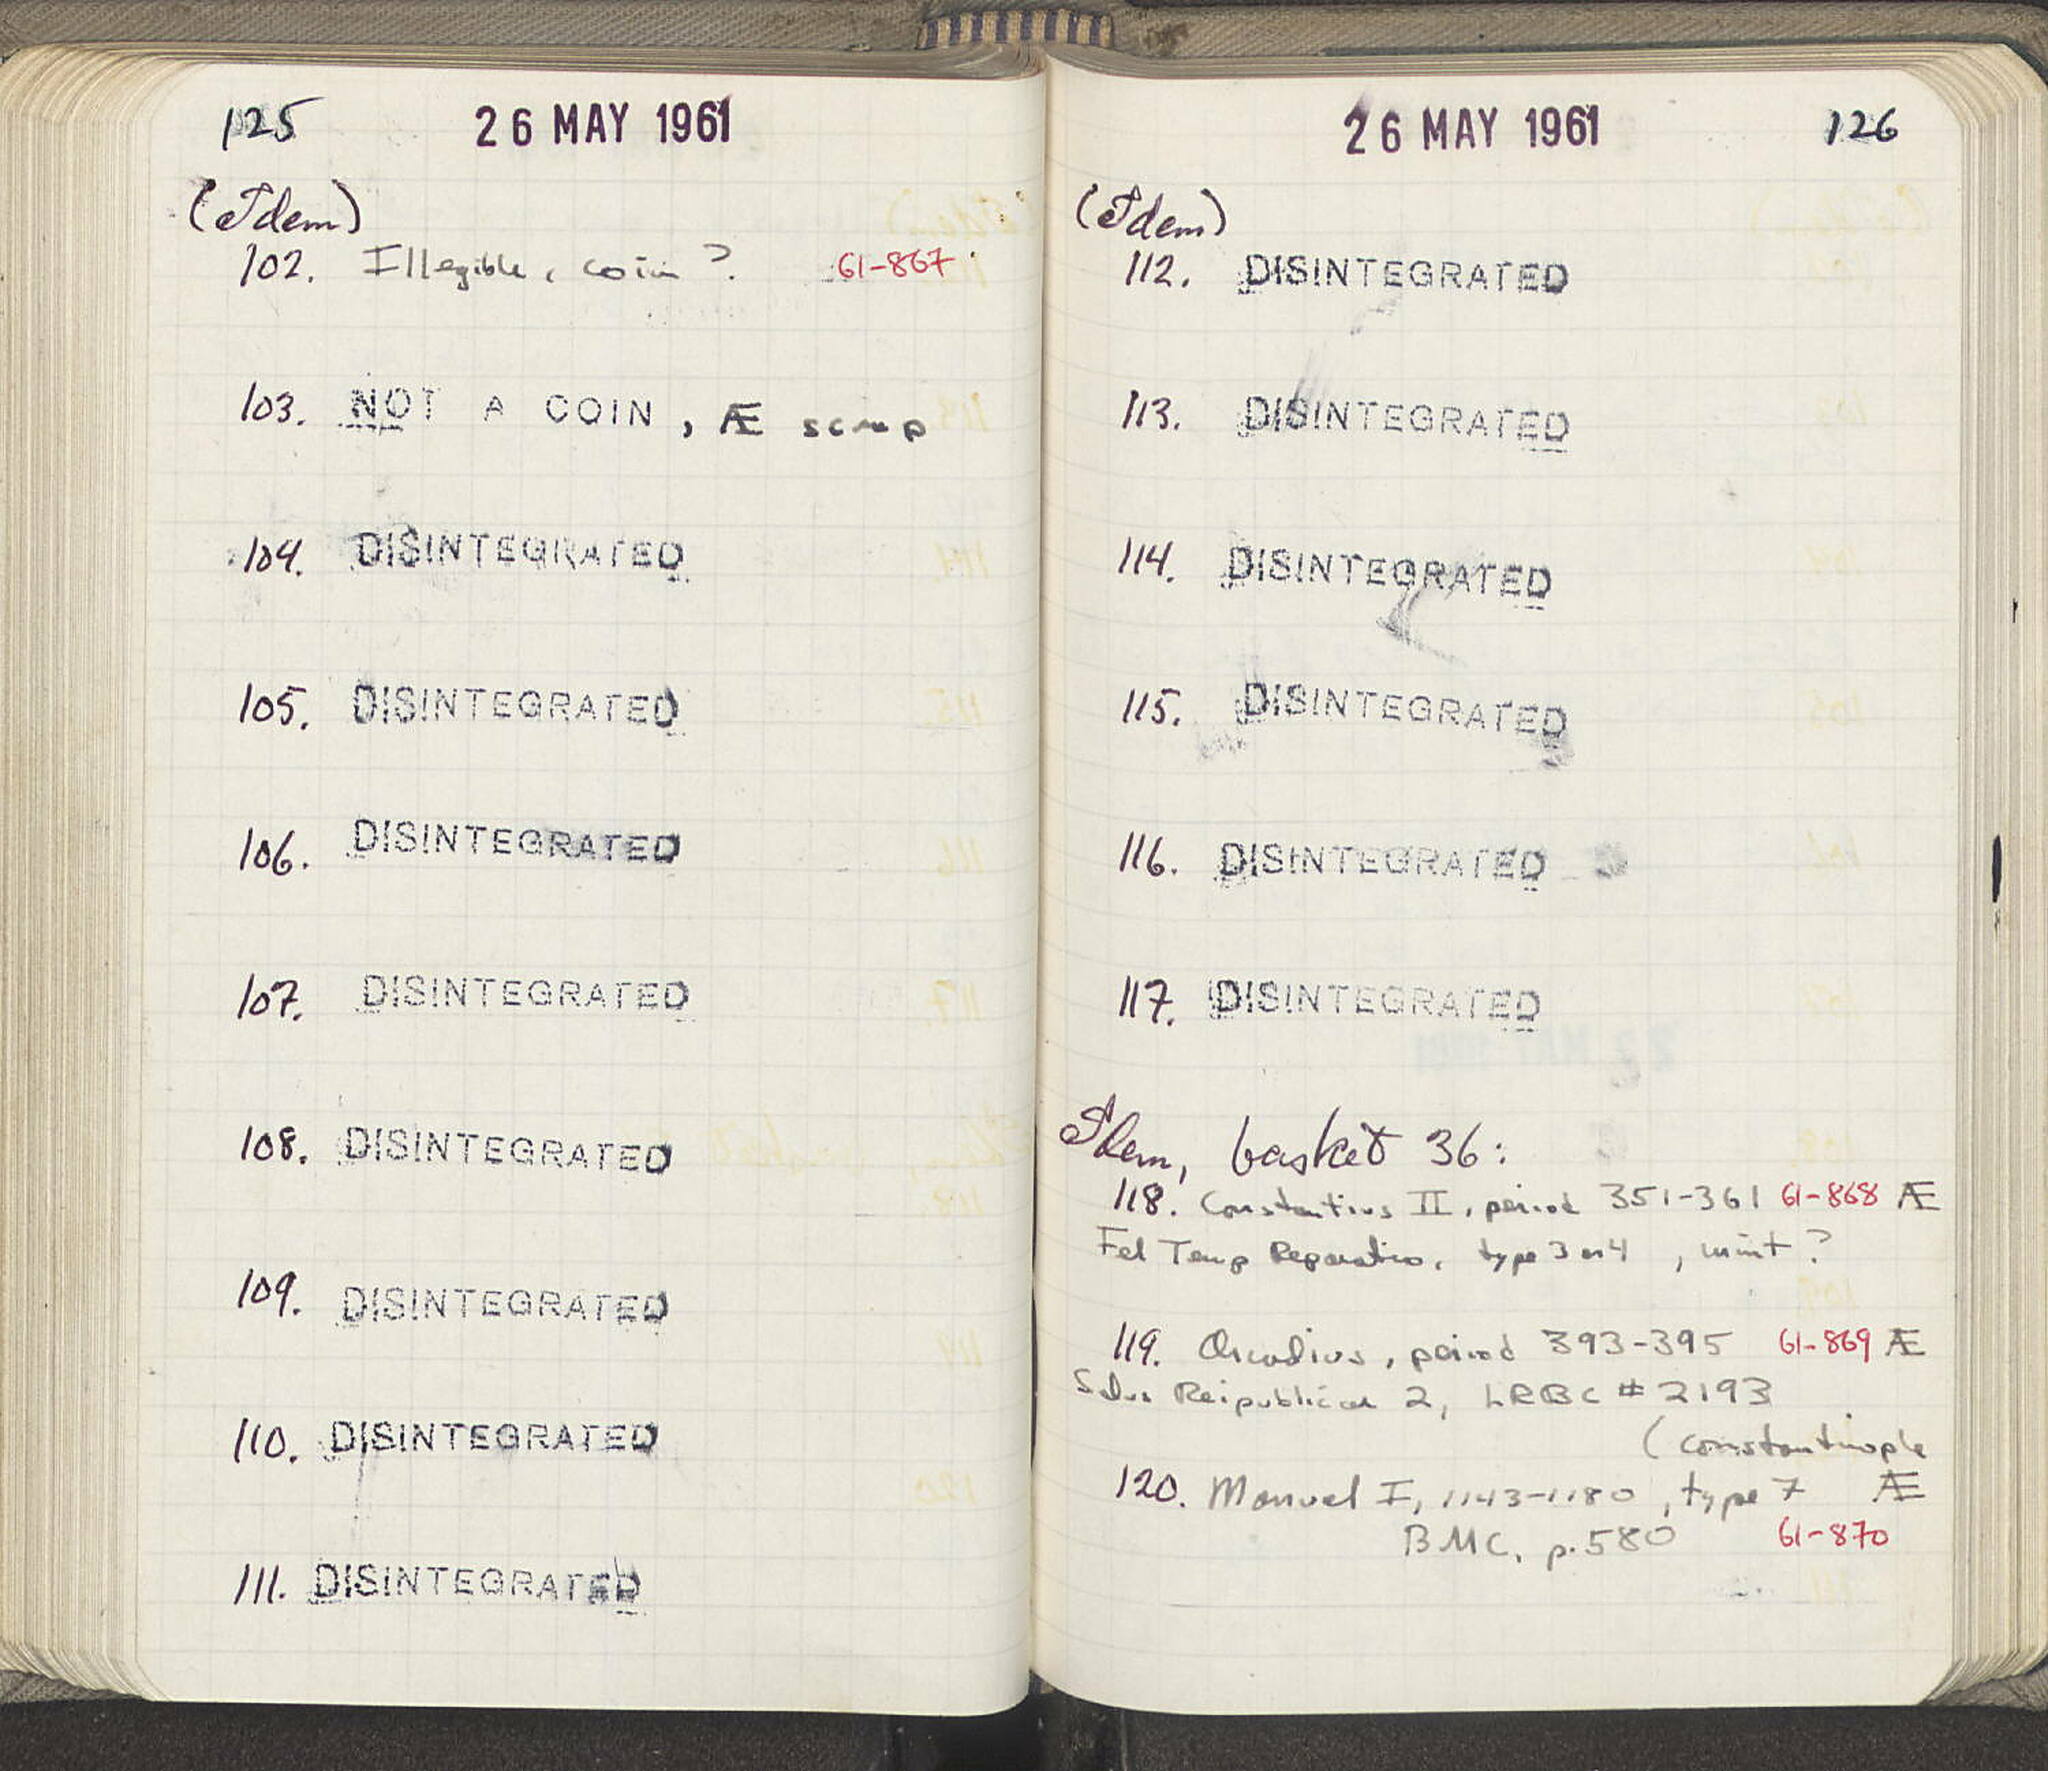 125 26 MAY 1961
(Idem)
102. Illegible, coin? 61-867
103. NOT A COIN, Æ scrap
104. DISINTEGRATED
105. DISINTEGRATED
106. DISINTEGRATED
107. DISINTEGRATED
108. DISINTEGRATED
109. DISINTEGRATED
110. DISINTEGRATED
111. DISINTEGRATED
26 MAY 1961 126
(Idem)
112. DISINTEGRATED
113. DISINTEGRATED
114. DISINTEGRATED
115. DISINTEGRATED
116. DISINTEGRATED
117. DISINTEGRATED
Idem, basket 36:
118. Constantius II, period 351-361 61-868 Æ
Fel Temp Reparatio, type 3 or 4, mint?
119. Arcadius, period 393-395 61-869 Æ
Salus Reipublicae 2, LRBC #2193
(Constantinople
120. Manuel I, 1143-1180, type 7 Æ
BMC, p. 580 61-870